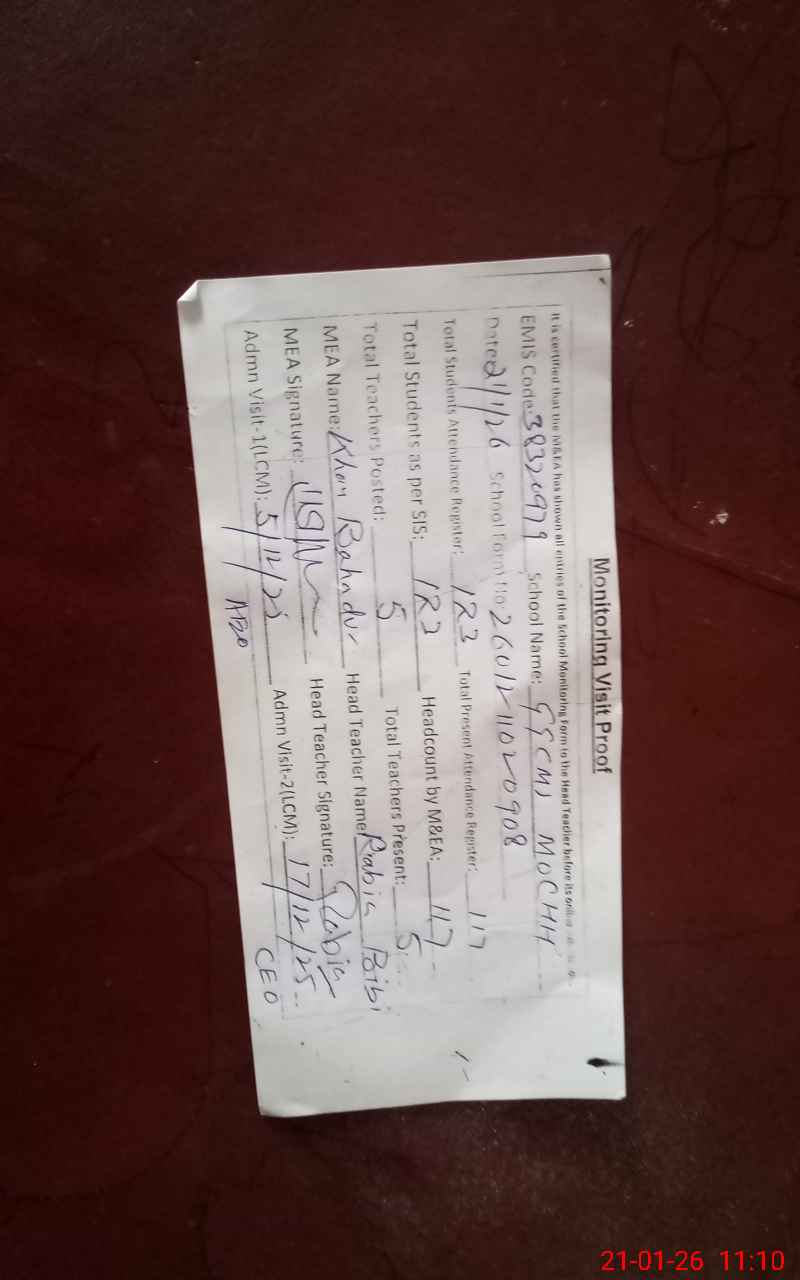 Monitoring Visit Proof
It is certified that the M&EA has shown all entries of the School Monitoring Form to the Head Teacher before its
EMIS Code: School Name: MOCHH
Date: 21/1/26 School Form No: 
Total Students Attendance Register: 123 Total Present Attendance Register: 117
Total Students as per SIS: 123 Headcount by M&EA: 117
Total Teachers Posted: 5 Total Teachers Present: 5
MEA Name: Khan Bahadur Head Teacher Name: Rabia Bibi
MEA Signature: Head Teacher Signature: Rabia
Admn Visit-1(LCM): 5/12/25 Admn Visit-2(LCM): 17/12/25
AEO CEO
21-01-26 11:10